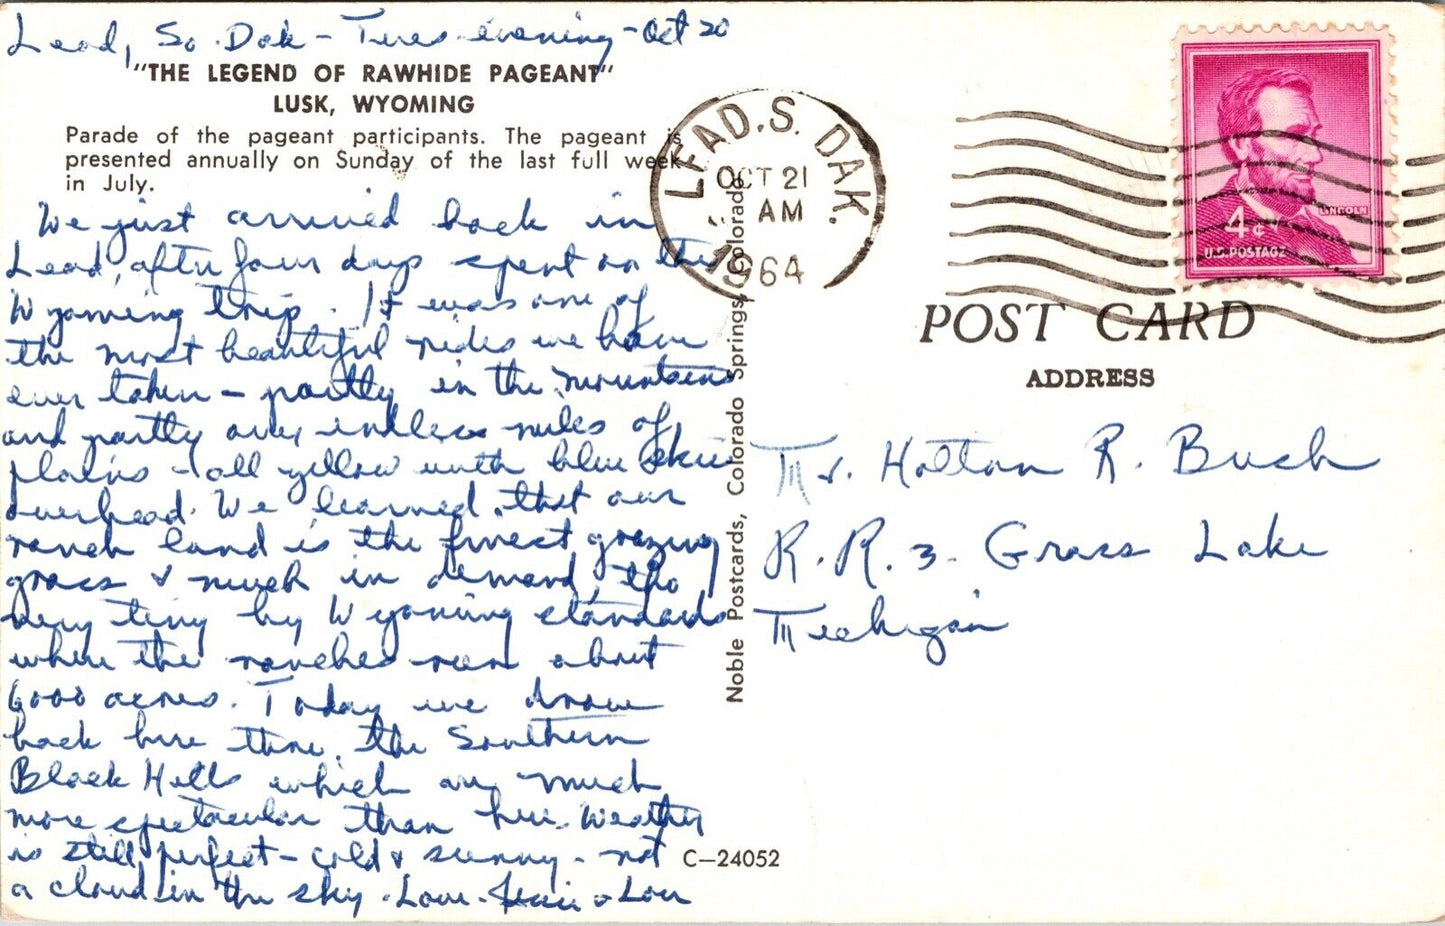 Lead, So. Dak - Tues. evening - Oct 20
"THE LEGEND OF RAWHIDE PAGEANT"
LUSK, WYOMING
Parade of the pageant participants. The pageant is
presented annually on Sunday of the last full week
in July.
We just arrived back in
Lead, after four days spent on the
Wyoming trip. It was one of
the most beautiful rides we have
ever taken - partly in the mountains
and partly over endless miles of
plains - all yellow with blue skies
overhead. We learned that our
ranch land is the finest grazing
grass & much in demand, tho
very tiny by Wyoming standards
where the ranches run about
6000 acres. Today we drove
back here thru the Southern
Black Hills which are much
more spectacular than here. Weather
is still perfect - cold & sunny - not
a cloud in the sky. Love - & Lou
LEAD, S. DAK.
OCT 21
AM
1964
LINCOLN
4¢
U.S. POSTAGE
POST CARD
ADDRESS
Mr. Holton R. Buch
R.R. 3 - Grass Lake
Michigan
Noble Postcards, Colorado Springs, Colorado
C-24052